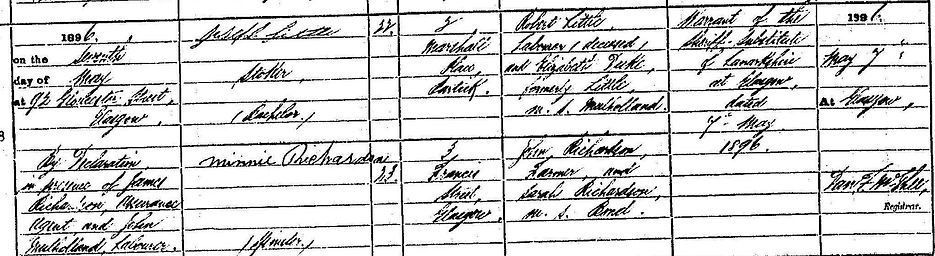 1896,
on the Seventh
day of May
at 92 Gloucester Street,
Glasgow.
Joseph Little
Stoker
(Bachelor)
22
2
Marshall
Place,
Partick.
Robert Little,
Labourer (deceased)
and Elizabeth
formerly Little
m. s. Mulholland.
Warrant of the
Sheriff-Substitute
of Lanarkshire
at Glasgow
dated
7th May
1896.
1896.
May 7
At Glasgow,
By Declaration
in presence of James
Richardson Insurance
Agent, and John
Mulholland, Labourer.
Minnie Richardson
(Spinster)
23
3
Francis
Street,
Glasgow
John Richardson,
Farmer, and
Sarah Richardson,
m. s. Bond.
Registrar.